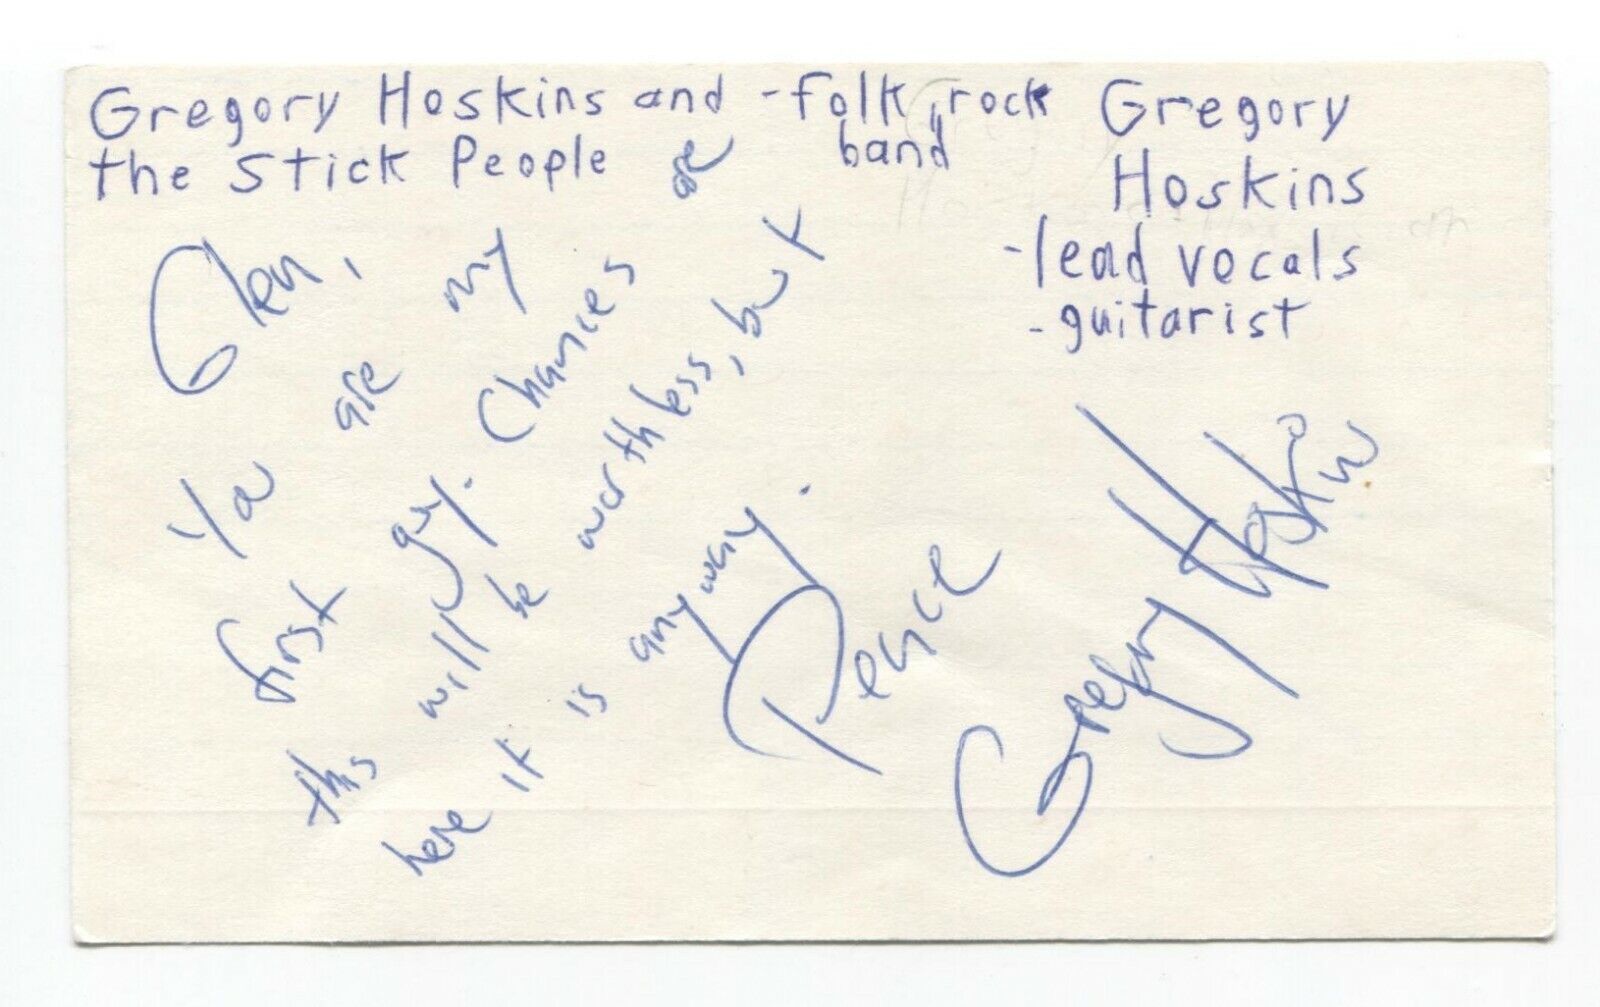 Gregory Hoskins and
the Stick People
- folk, rock
band
Gregory
Hoskins
- lead vocals
- guitarist
Glen,
Ya are my
first guy. Chances are
this will be worthless, but
here it is anyway.
Peace
Gregory Hoskins